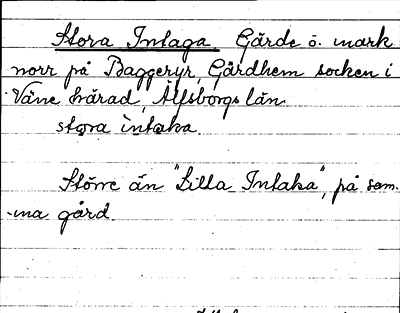 Stora Intaga Gärde o. mark
norr på Baggeryr, Gärdhem socken i
Väne härad, Älfsborgs län.
stọra ìntaka.
Större än "Lilla Intaka", på sam-
-ma gård.